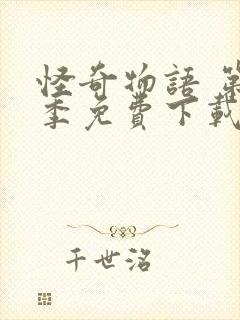 怪奇物語 第
季免費下載
千世洺